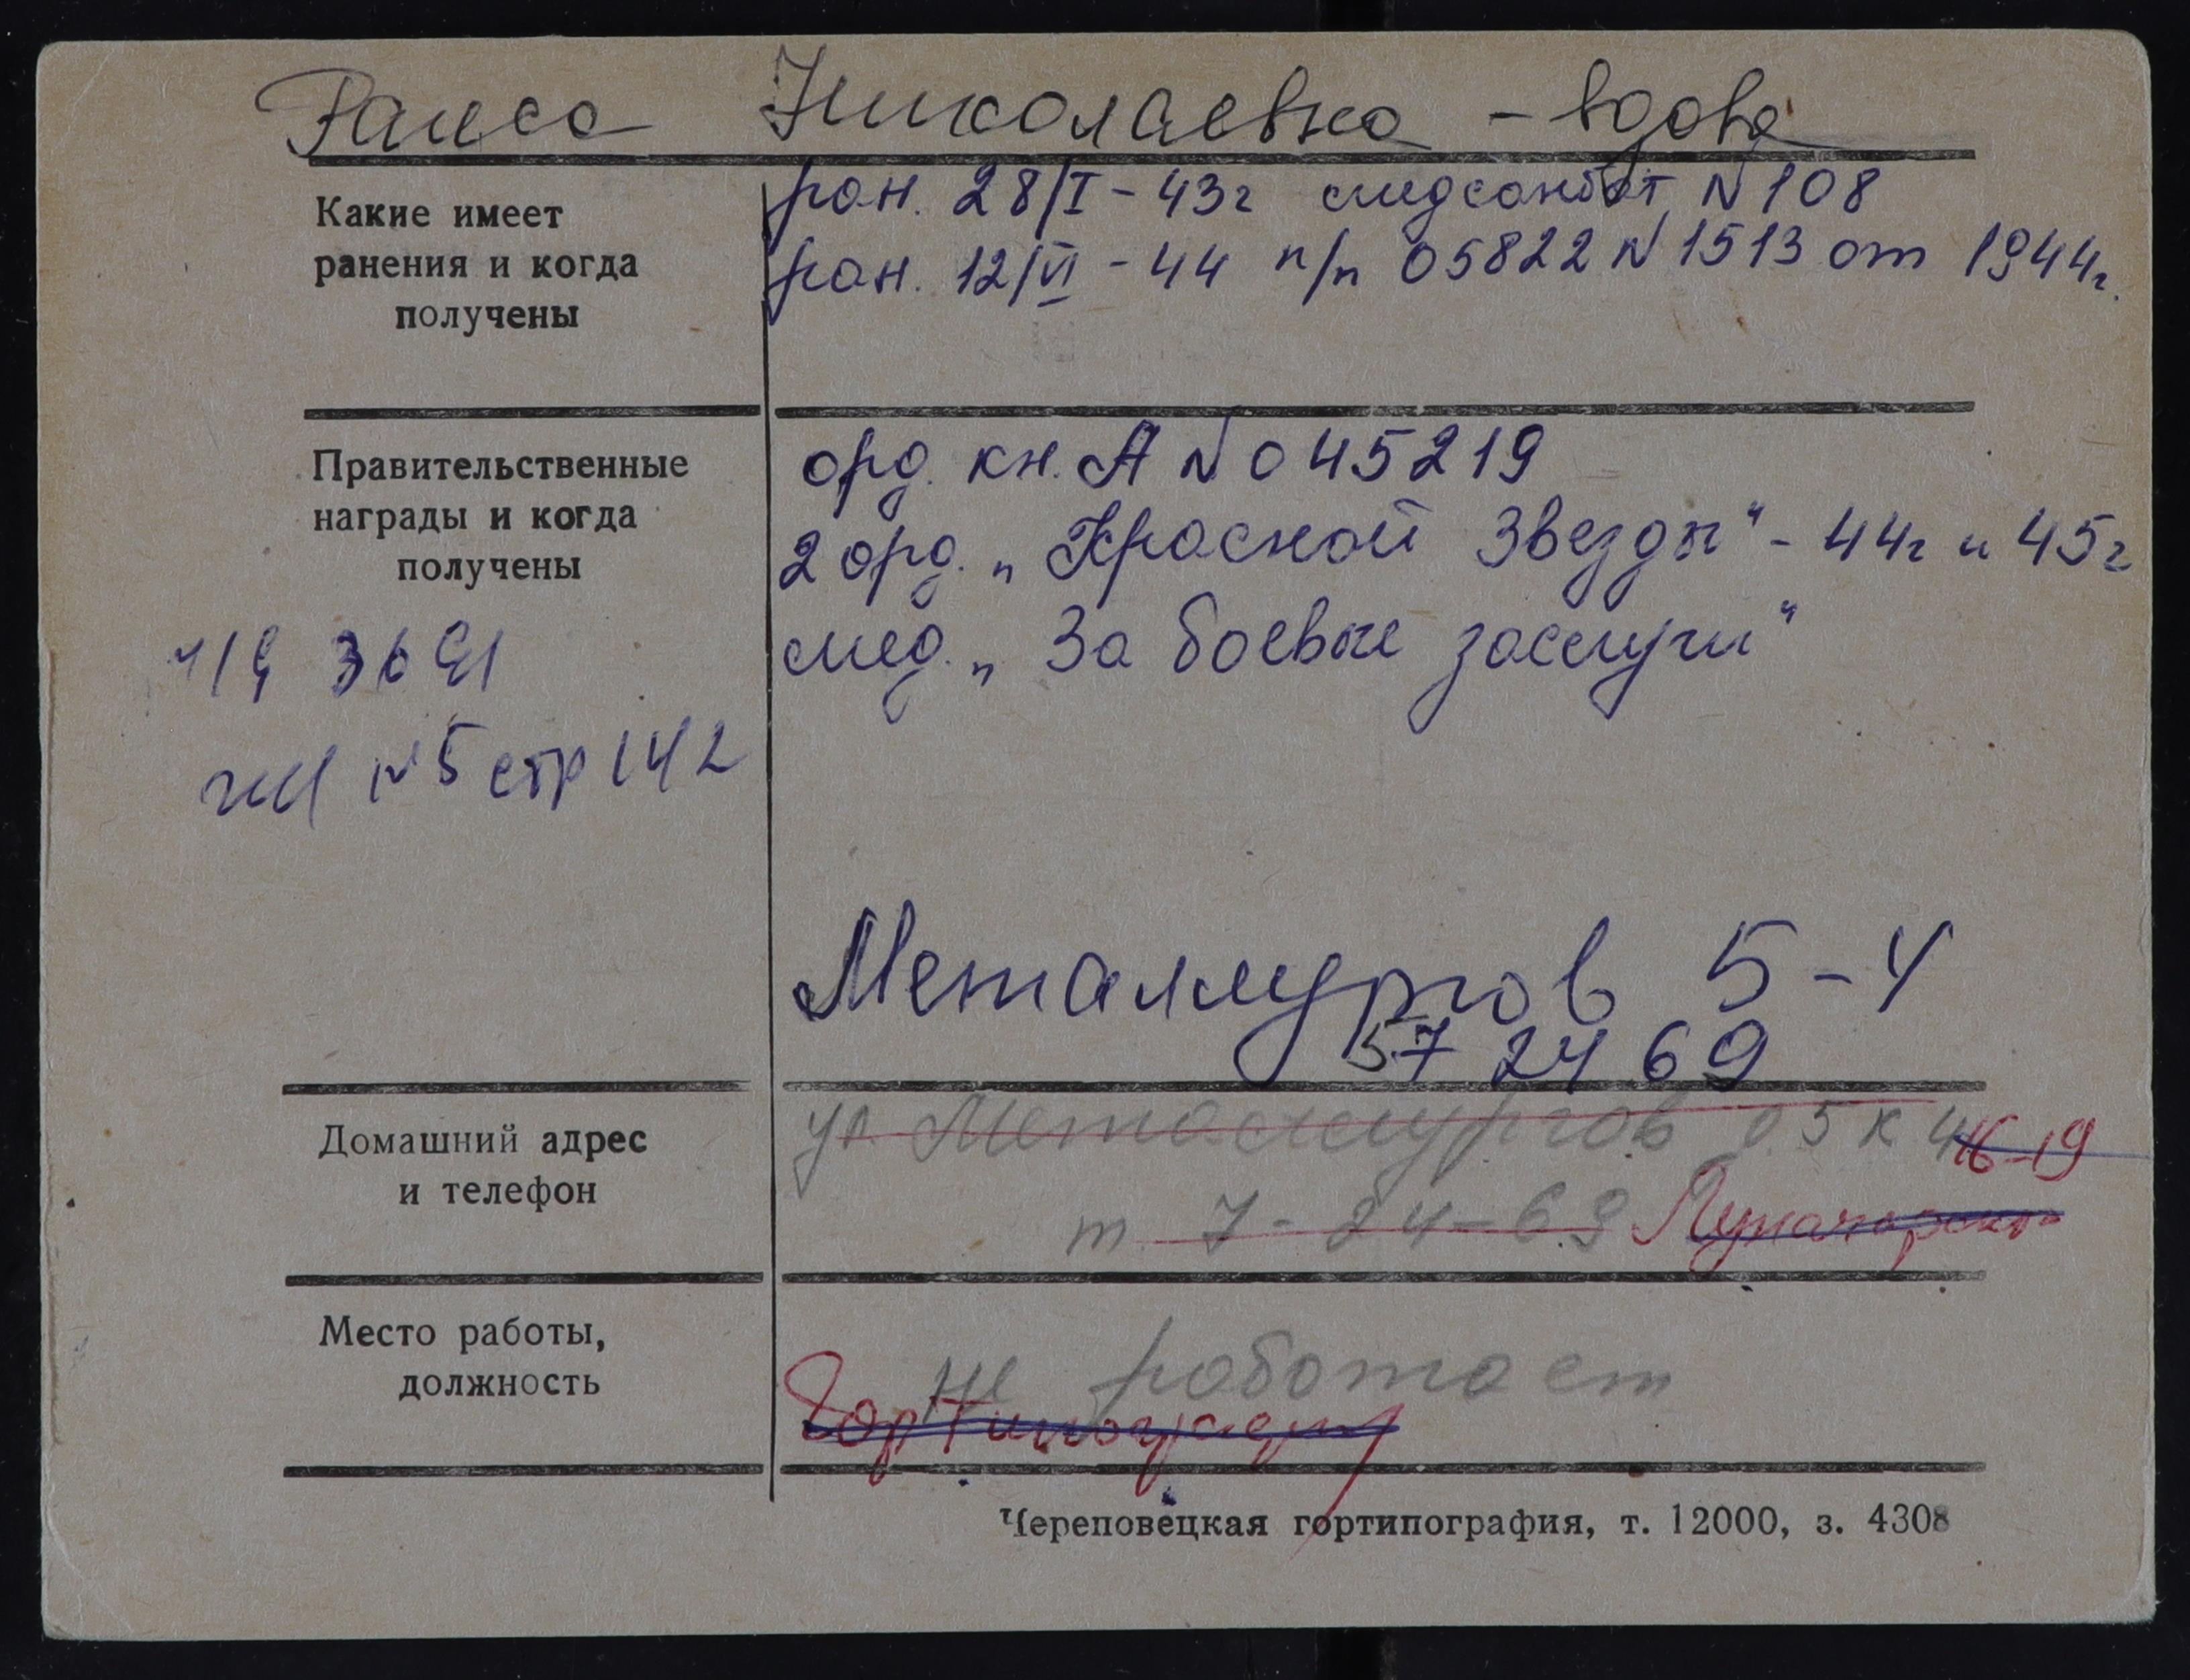 Раиса Николаевна - вдова
Какие имеет
ранения и когда
получены
ран. 28/I - 43г медсанбат N 108
ран. 12/VI - 44 п/п 05822 N 1513 от 1944г.
Правительственные
награды и когда
получены
орд. кн. А № 045219
2 орд. „Красной Звезды" - 44г и 45г
мед. „За боевые заслуги"
N5 стр 142
Металлургов 5-4
57 24 69
Домашний адрес
и телефон
ул. Металлургов д. 5 к 4 16-19
т. 7-24-69 Луначарского
Место работы,
должность
не работает
Гортипография
Череповецкая гортипография, т. 12000, з. 4308